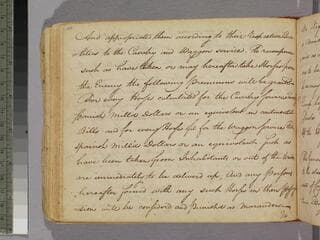 And appropriate them according to their respective Abi-
lities to the Cavalry and Waggon service. To recompence
such as have taken or may hereafter take Horses from
the Enemy the following Premiums will be granted
For every Horse calculated for the Cavalry four
Spanish Mill'd Dollars or an equivalent in continental
Bills and for every Horse fit for the Waggon service
Spanish Mill'd Dollars or an equivalent. such as
have been taken from Inhabitants or out of the
are immediately to be deliverd up. And any Persons
hereafter found with any such Horses in their posses-
sion will be considered and Punished as Marauders